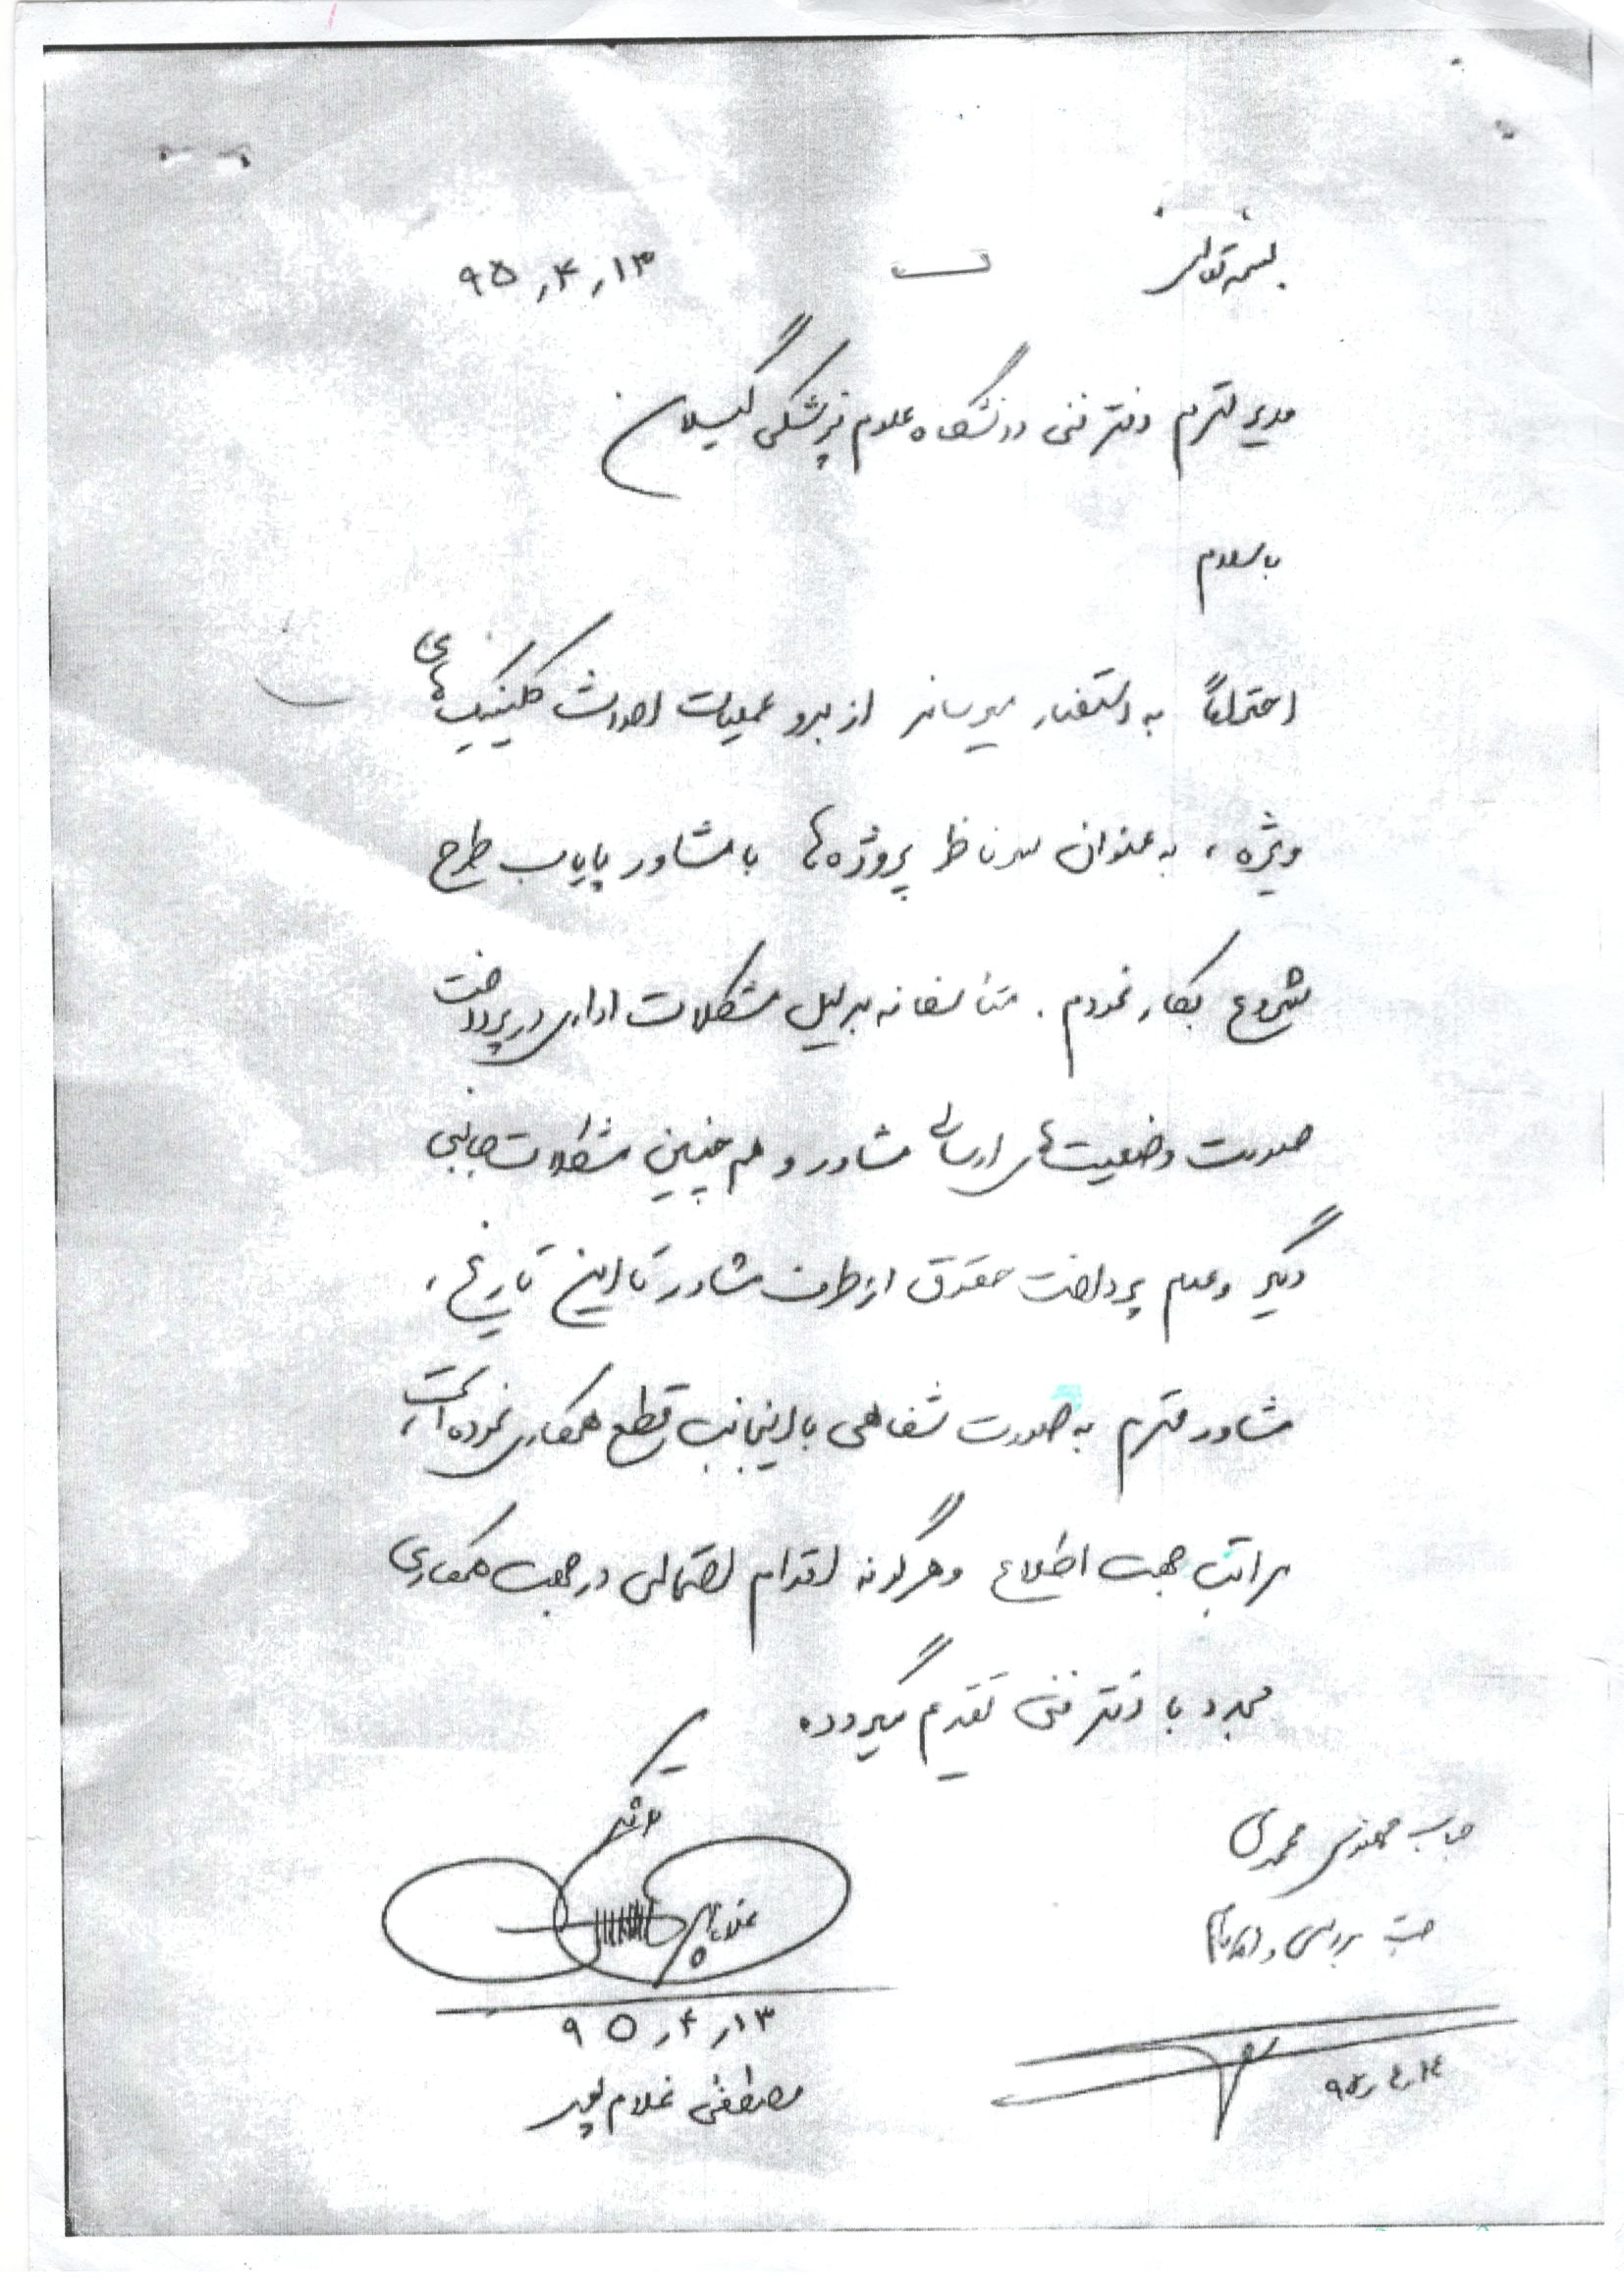 بسمه تعالی
۹۵٫۴٫۱۳
مدیر محترم دفتر فنی دانشگاه علوم پزشکی گیلان
با سلام
احتراماً به استحضار میرساند از بدو عملیات احداث کلینیک های
ویژه ، به عنوان سرناظر پروژه ها با مشاور پایاب طرح
شروع بکار نمودم . متأسفانه بدلیل مشکلات اداری در پرداخت
صورت وضعیت های ارسالی مشاور و هم چنین مشکلات جانبی
دیگر و عدم پرداخت حقوق از طرف مشاور تا این تاریخ ،
مشاور محترم به صورت شفاهی با اینجانب قطع همکاری نموده است
مراتب جهت اطلاع و هرگونه اقدام احتمالی در جهت همکاری
مجدد با دفتر فنی تقدیم میگردد
جناب مهندس محمدی
جهت بررسی و اقدام
غلامپور
۹۵٫۴٫۱۳
مصطفی غلام پور
۹۵٫۴٫۱۴